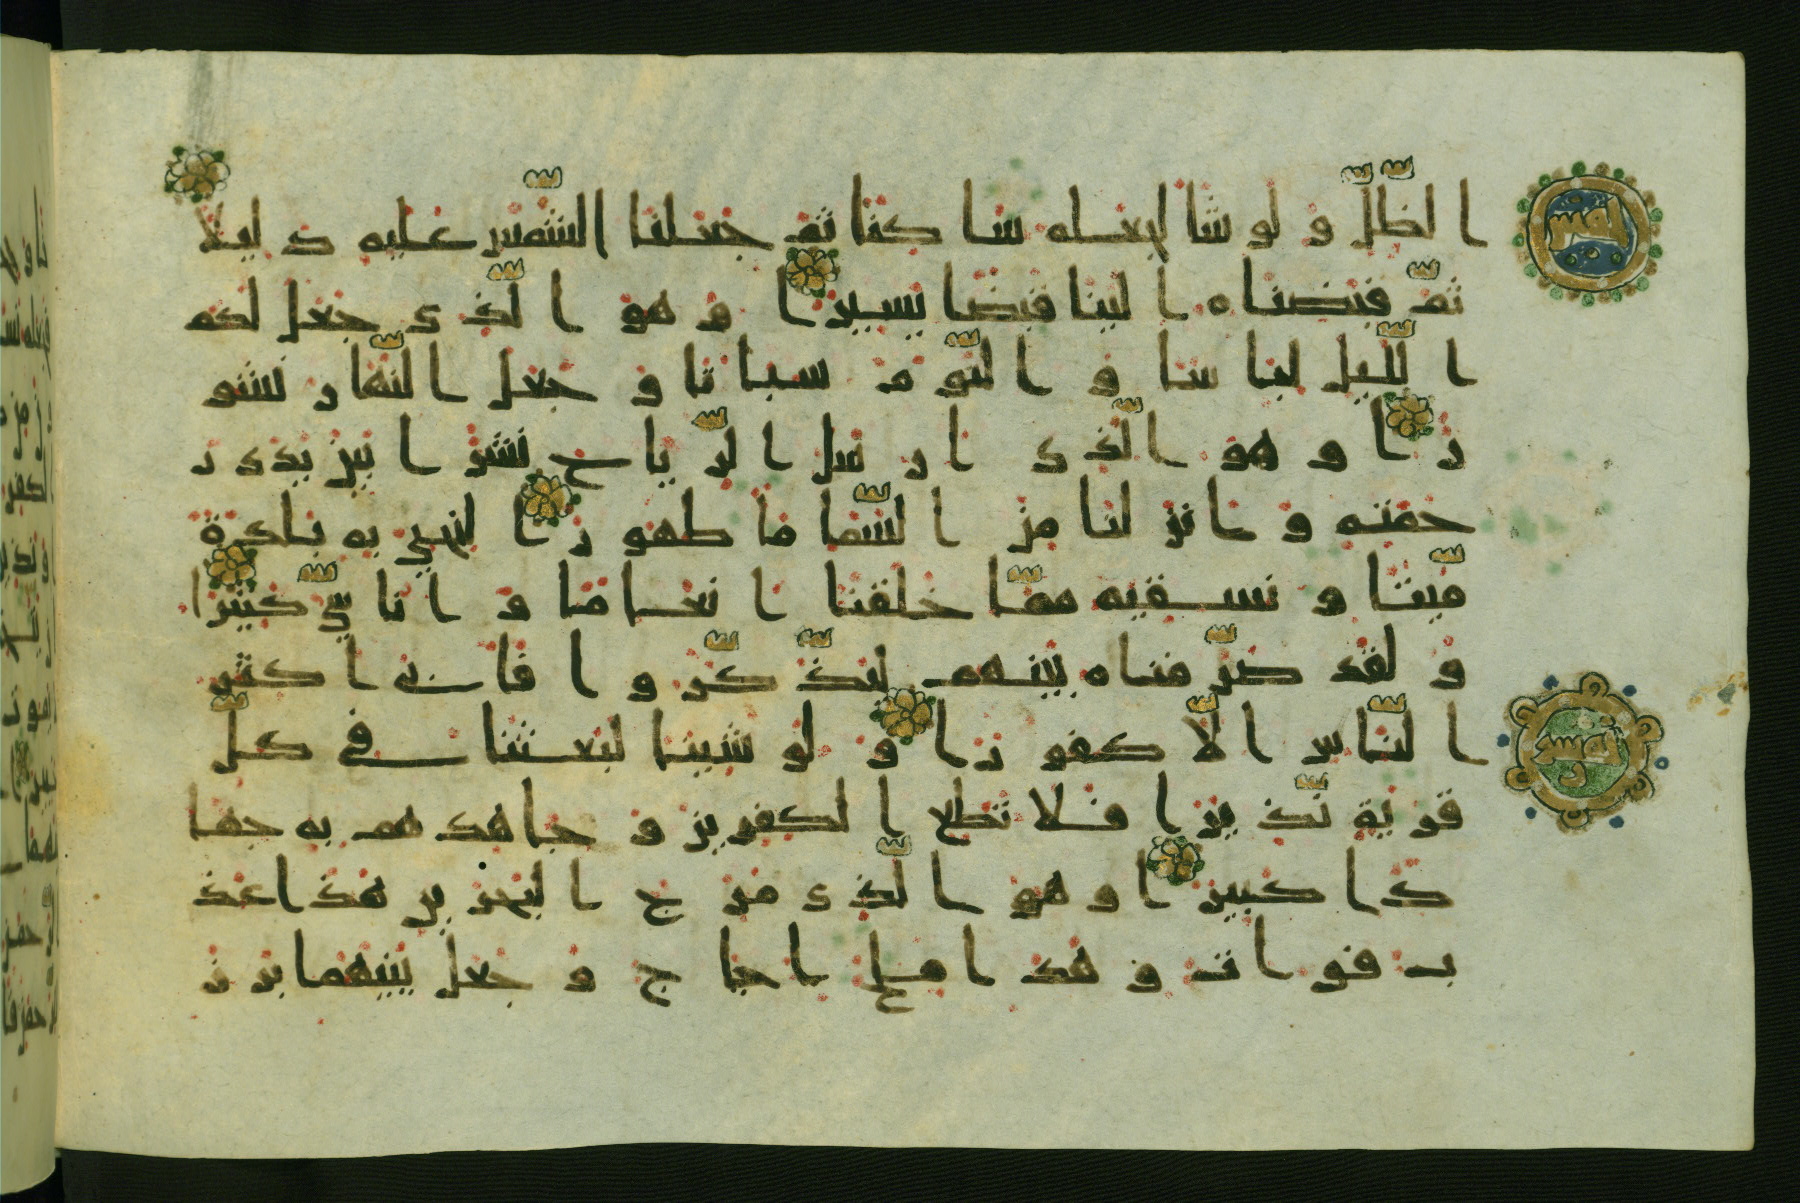 الظلّ ولو شا لجعله ساكنا ثم جعلنا الشّمس عليه دليلا
ثمّ قبضناه الينا قبضا يسيرا وهو الّذى جعل لكم
الّليل لباسا والنّوم سباتا وجعل النّهار نشو
را وهو الّذى ارسل الرّياح نشرا بين يدى ر
حمته وانزلنا من السّما ما طهورا لنحيي به بلدة
مّيتا ونسقيه ممّا خلقنا انعاما واناسيّ كثيرا
ولقد صرّفناه بينهم ليذّكّروا فابى اكثر
النّاس الّا كفورا ولو شينا لبعثنا في كلّ
قرية نّذيرا فلا تطع الكفرين وجاهدهم به جها
دا كبيرا وهو الّذى مرج البحرين هذا عذ
ب فرات وهذا ملح اجاج وجعل بينهما برز